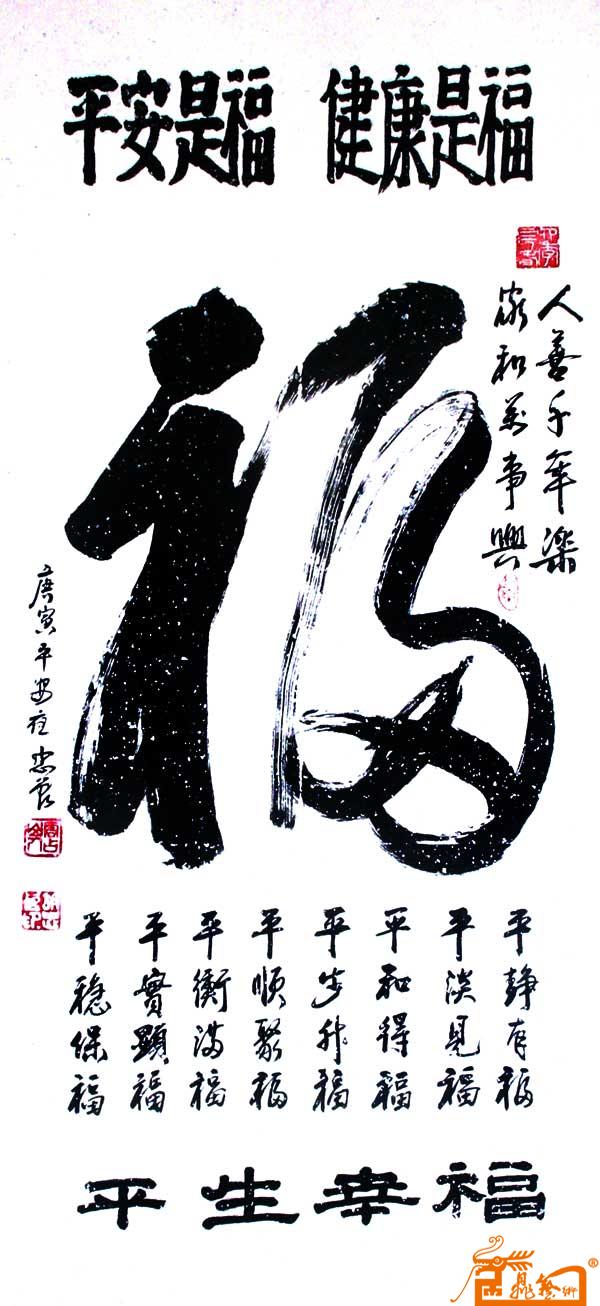 平安是福 健康是福
福
人善千年樂
家和萬事興
庚寅平安在忠营
平静有福
平淡見福
平和得福
平步升福
平順聚福
平衡满福
平實顯福
平穩保福
平生幸福